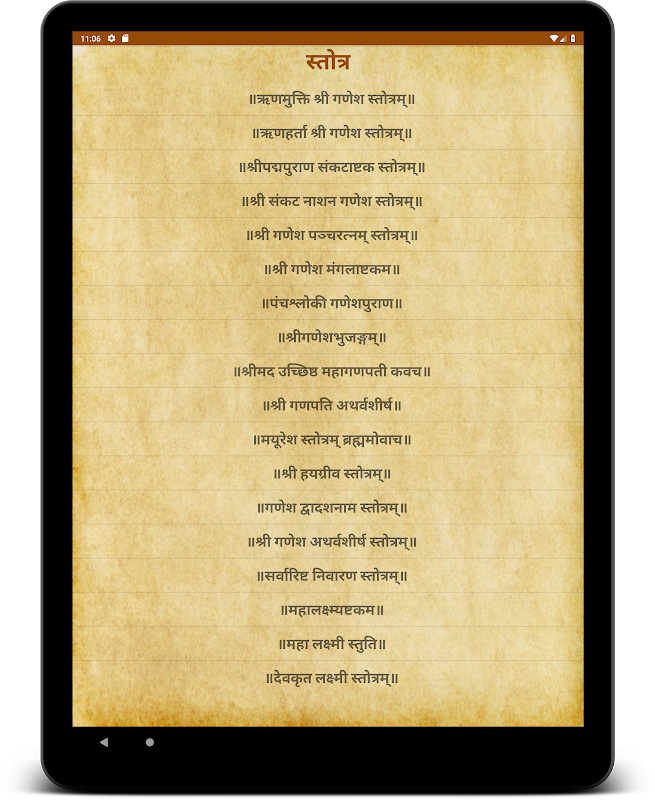 11:06
स्तोत्र
॥ऋणमुक्ति श्री गणेश स्तोत्रम्॥
॥ऋणहर्ता श्री गणेश स्तोत्रम्॥
॥श्रीपद्मपुराण संकटाष्टक स्तोत्रम्॥
॥श्री संकट नाशन गणेश स्तोत्रम्॥
॥श्री गणेश पञ्चरत्नम् स्तोत्रम्॥
॥श्री गणेश मंगलाष्टकम॥
॥पंचश्लोकी गणेशपुराण॥
॥श्रीगणेशभुजङ्गम्॥
॥श्रीमद उच्छिष्ठ महागणपती कवच॥
॥श्री गणपति अथर्वशीर्ष॥
॥मयूरेश स्तोत्रम् ब्रह्ममोवाच॥
॥श्री हयग्रीव स्तोत्रम्॥
॥गणेश द्वादशनाम स्तोत्रम्॥
॥श्री गणेश अथर्वशीर्ष स्तोत्रम्॥
॥सर्वारिष्ट निवारण स्तोत्रम्॥
॥महालक्ष्म्यष्टकम॥
॥महा लक्ष्मी स्तुति॥
॥देवकृत लक्ष्मी स्तोत्रम्॥